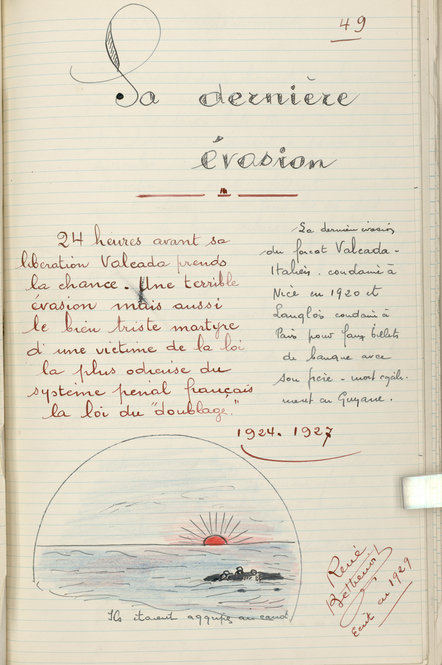 49
Sa dernière
évasion
24 heures avant sa
libération Valcada prends
la chance. Une terrible
évasion mais aussi
le bien triste martyre
d'une victime de la loi
la plus odieuse du
système penal français
la loi du "doublage."
La dernière évasion
du forçat Valcada -
Italien. condamné à
Nice en 1920 et
Langlois condamé à
Paris pour faux billets
de banque avec
son frère - mort égale-
ment en Guyane.
1924. 1927
Ils étaient aggripés au canot
René
Belbenoit
Ecrit en 1929